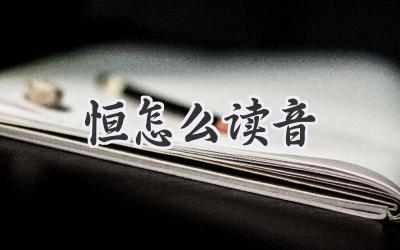 恒怎么读音